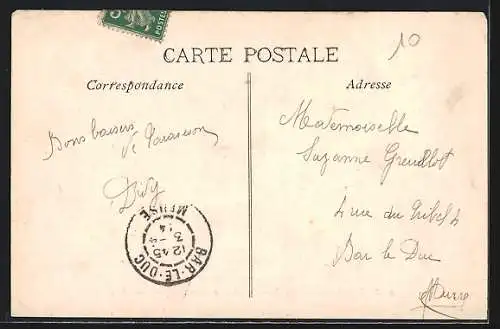 10
POSTES
CARTE POSTALE
Correspondance
Bons baisers
de
Adresse
Mademoiselle
Suzanne
4 rue du
Bar le Duc
Meuse
BAR-LE-DUC
MEUSE
12 45
3 -4